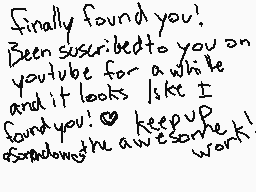 finally found you!
Been suscribed to you on
youtube for a while
and it looks like I
found you! ♥ keep up
the awesome
work!